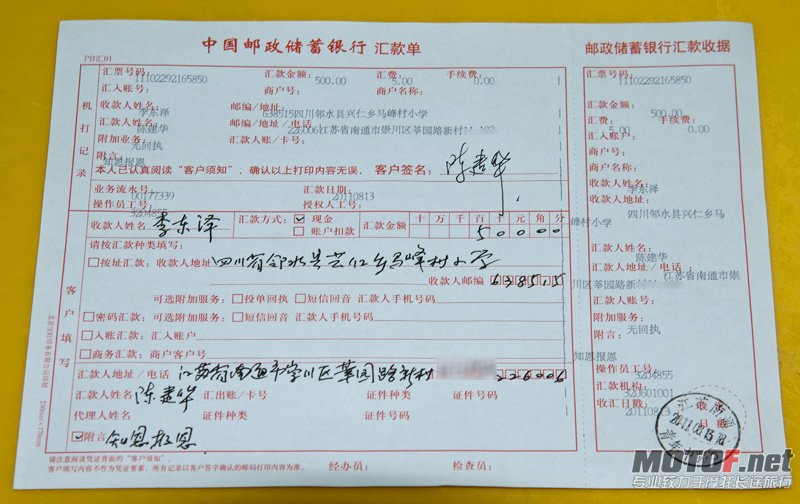 中国邮政储蓄银行 汇款单
PB汇01
汇票号码: 11102292165850 汇款金额: 500.00 汇费: 5.00 手续费: 0.00
汇入账号: 商户号: 商户名称:
收款人姓名: 李东泽 邮编/地址: 638515四川邻水县兴仁乡马峰村小学
汇款人姓名: 陈建华 邮编/地址/电话: 226006江苏省南通市崇川区莘园路新村
附加业务: 无回执 汇款人账/卡号:
附言: 知恩报恩
本人已认真阅读“客户须知”,确认以上打印内容无误。 客户签名: 陈建华
机打记录
业务流水号: 00177339 汇款日期: 20110813
操作员工号: 3204855 授权人工号:
收款人姓名 李东泽 汇款方式: ☑现金 □账户扣款 汇款金额 十万千百十元角分 50000
请按汇款种类填写:
□按址汇款: 收款人地址 四川省邻水县兴仁乡马峰村小学
收款人邮编 638515
可选附加服务: □投单回执 □短信回音 汇款人手机号码
□密码汇款: 可选附加服务: □短信回音 汇款人手机号码
□入账汇款: 汇入账户
□商务汇款: 商户客户号
汇款人地址/电话 江苏省南通市崇川区莘园路新村 226006
汇款人姓名 陈建华 汇出账/卡号 证件种类 证件号码
代理人姓名 证件种类 证件号码
☑附言 知恩报恩
客户填写
请注意阅读凭证背面的“客户须知”。
客户填写内容不作为凭证要素。所有记录以客户签字确认的邮局打印内容为准。 经办员: 检查员:
邮政储蓄银行汇款收据
汇票号码: 11102292165850
汇款金额: 500.00
汇费: 5.00 手续费: 0.00
汇入账户:
商户号:
商户名称:
收款人姓名: 李东泽
收款人地址: 四川邻水县兴仁乡马峰村小学
汇款人姓名: 陈建华
汇款人地址/电话: 江苏省南通市崇川区莘园路新村
附加服务: 无回执
附言: 知恩报恩
操作员工号: 3204855
汇款机构: 320601001
收汇日戳: 20110813
收汇日戳
江苏南通
2011.08.13.18
MOTOF.net
专业致力于摩托长途旅行